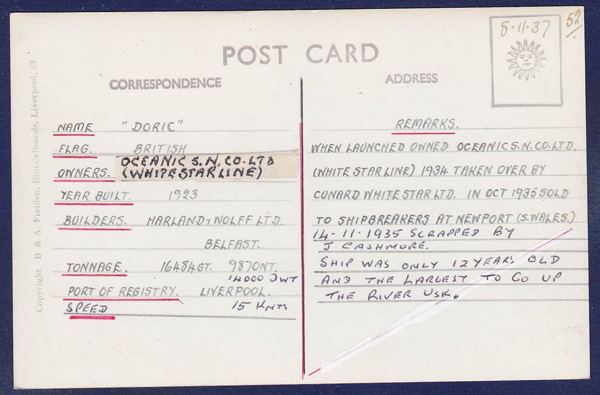 8-11-37
52
POST CARD
CORRESPONDENCE
ADDRESS
Copyright B & A. Feilden, Blundellsands, Liverpool, 23
NAME "DORIC"
FLAG. BRITISH
OWNERS. OCEANIC S.N. CO. LTD
(WHITE STAR LINE)
YEAR BUILT. 1923
BUILDERS. HARLAND & WOLFF LTD.
BELFAST.
TONNAGE. 16484 GT. 9870 NT.
14000 DWT
PORT OF REGISTRY. LIVERPOOL.
SPEED 15 KNTS
REMARKS.
WHEN LAUNCHED OWNED OCEANIC S.N. CO. LTD.
(WHITE STAR LINE) 1934 TAKEN OVER BY
CUNARD WHITE STAR LTD. IN OCT 1935 SOLD
TO SHIPBREAKERS AT NEWPORT (S. WALES.)
14-11-1935 SCRAPPED BY
J CASHMORE.
SHIP WAS ONLY 12 YEARS OLD
AND THE LARGEST TO GO UP
THE RIVER USK.